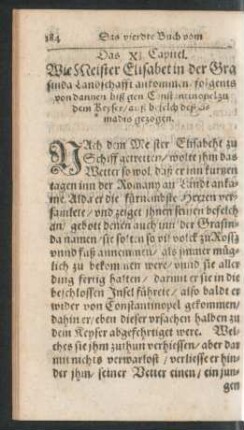 184 Das vierdte Buch vom
Das XI. Capitel.
Wie Meister Elisabet in der Gra
sinda Landtschafft ankommen, folgents
von dannen biß gen Constantinopel zu
dem Keyser, auß befelch deß A
madis gezogen.
NAch dem Meister Elisabeht zu
Schiff getretten / wolte ihm das
Wetter so wol daß er inn kurtzen
tagen inn der Romany an Landt anka-
me. Alda er die fürnämste Herren ver-
samlete / vnd zeiget ihnen seinen befelch
an / gebott denen auch inn der Grasin-
da namen / sie solten so vil volck zu Roß
vnnd fuß annemmen / als immer müg-
lich zu bekommen were / vnnd sie aller
ding fertig halten / damit er sie in die
beschlossen Insel führete / also baldt er
wider von Constantinopel gekommen /
dahin er / eben dieser vrsachen halben zu
dem Keyser abgefehrtiget were. Wel-
ches sie ihm zuthun verhiessen / aber dar
mit nichts verwarlost / verliesse er hin-
der ihm / seiner Vetter einen / ein jun-
gen